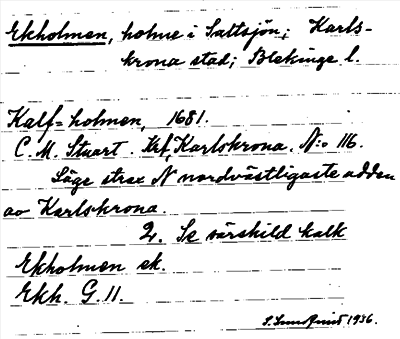 Ekholmen, holme i Saltsjön; Karls-
krona stad; Blekinge l.
Kalf=holmen, 1681.
C. M. Stuart. Krf, Karlskrona. N:o 116.
Läge strax N nordvästligaste udden
av Karlskrona.
2. Se särskild kalk
Ekholmen ek.
Ekh. G. 11.
1936.